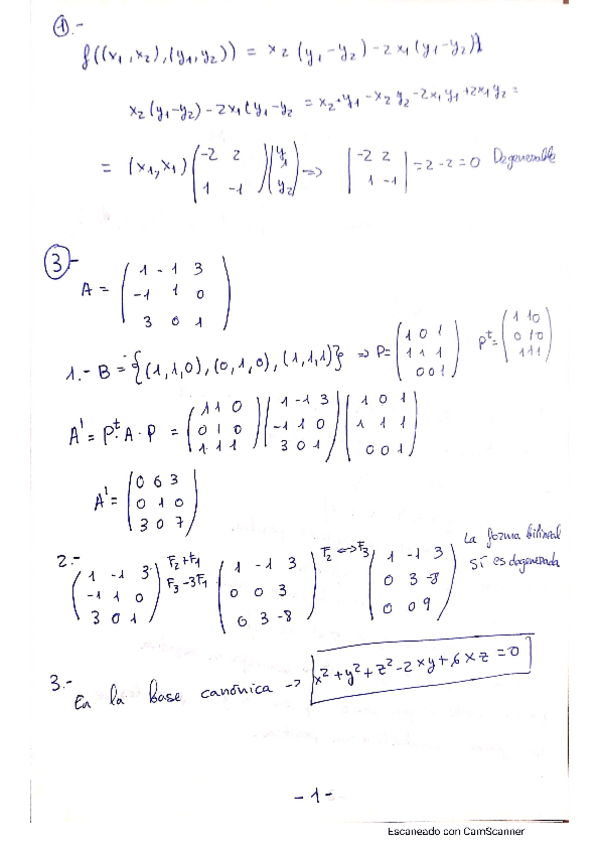 1.-
f((x1,x2),(y1,y2)) = x2(y1-y2)-2x1(y1-y2)
x2(y1-y2)-2x1(y1-y2 = x2·y1-x2y2-2x1y1+2x1y2 =
= (x1,x1) (-2 2 / 1 -1) (y1 / y2) => |-2 2 / 1 -1| = 2-2=0
3-
A = (1 -1 3 / -1 1 0 / 3 0 1)
1.- B = {(1,1,0),(0,1,0),(1,1,1)} => P = (1 0 1 / 1 1 1 / 0 0 1) Pt = (1 1 0 / 0 1 0 / 1 1 1)
A' = Pt·A·P = (1 1 0 / 0 1 0 / 1 1 1) (1 -1 3 / -1 1 0 / 3 0 1) (1 0 1 / 1 1 1 / 0 0 1)
A' = (0 6 3 / 0 1 0 / 3 0 7)
2.- (1 -1 3 / -1 1 0 / 3 0 1) F2+F1 F3-3F1 (1 -1 3 / 0 0 3 / 0 3 -8) F2<->F3 (1 -1 3 / 0 3 -8 / 0 0 9)
La forma bilineal
sí es degenerada
3.-
En la base canónica -> x²+y²+z²-2xy+6xz=0
-1-
Escaneado con CamScanner